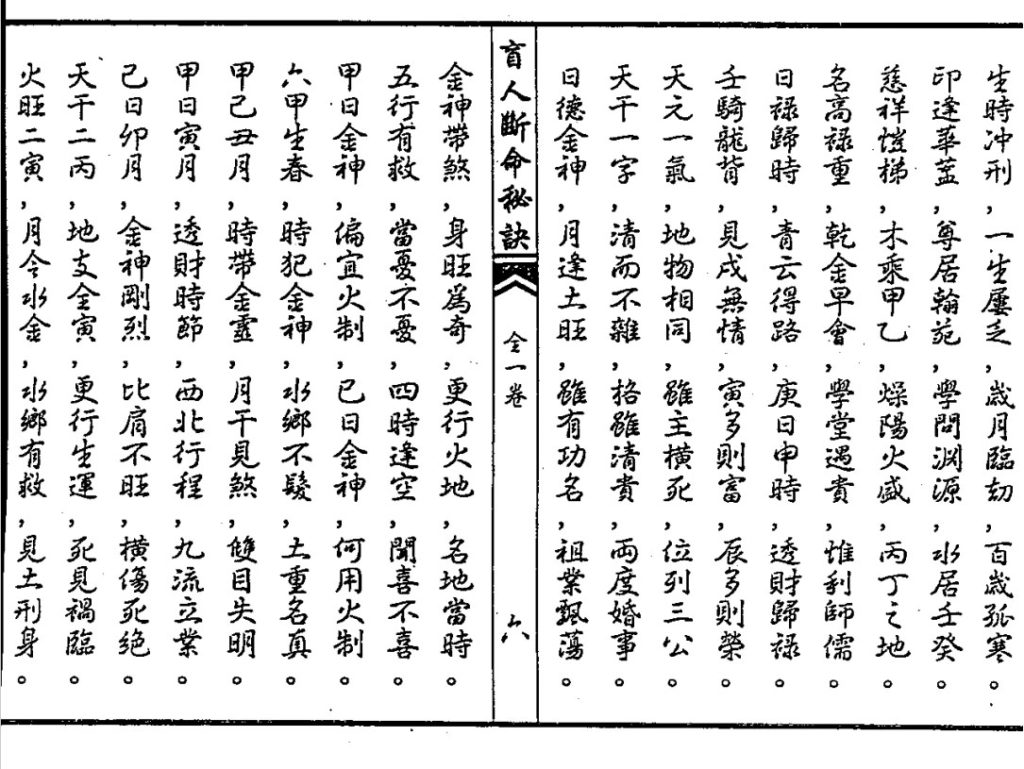 生時冲刑,一生屢乏,歲月臨劫,百歲孤寒。
印逢華蓋,尊居翰苑,學問淵源,水居壬癸。
慈祥愷悌,木乘甲乙,燥陽火盛,丙丁之地。
名高祿重,乾金早會,學堂遇貴,惟利師儒。
日祿歸時,青云得路,庚日申時,透財歸祿。
壬騎龍背,見戌無情,寅多則富,辰多則榮。
天元一氣,地物相同,雖主橫死,位列三公。
天干一字,清而不雜,格雖清貴,両度婚事。
日德金神,月逢土旺,雖有功名,祖業飄蕩。
盲人斷命秘訣
仝一卷
六
金神帶煞,身旺為奇,更行火地,名地當時。
五行有救,當憂不憂,四時逢空,聞喜不喜。
甲日金神,偏宜火制,已日金神,何用火制。
六甲生春,時犯金神,水鄉不髮,土重名真。
甲己丑月,時帶金靈,月干見煞,雙目失明。
甲日寅月,透財時節,西北行程,九流立業。
己日卯月,金神剛烈,比肩不旺,橫傷死絕。
天干二丙,地支全寅,更行生運,死見禍臨。
火旺二寅,月令水金,水鄉有救,見土刑身。